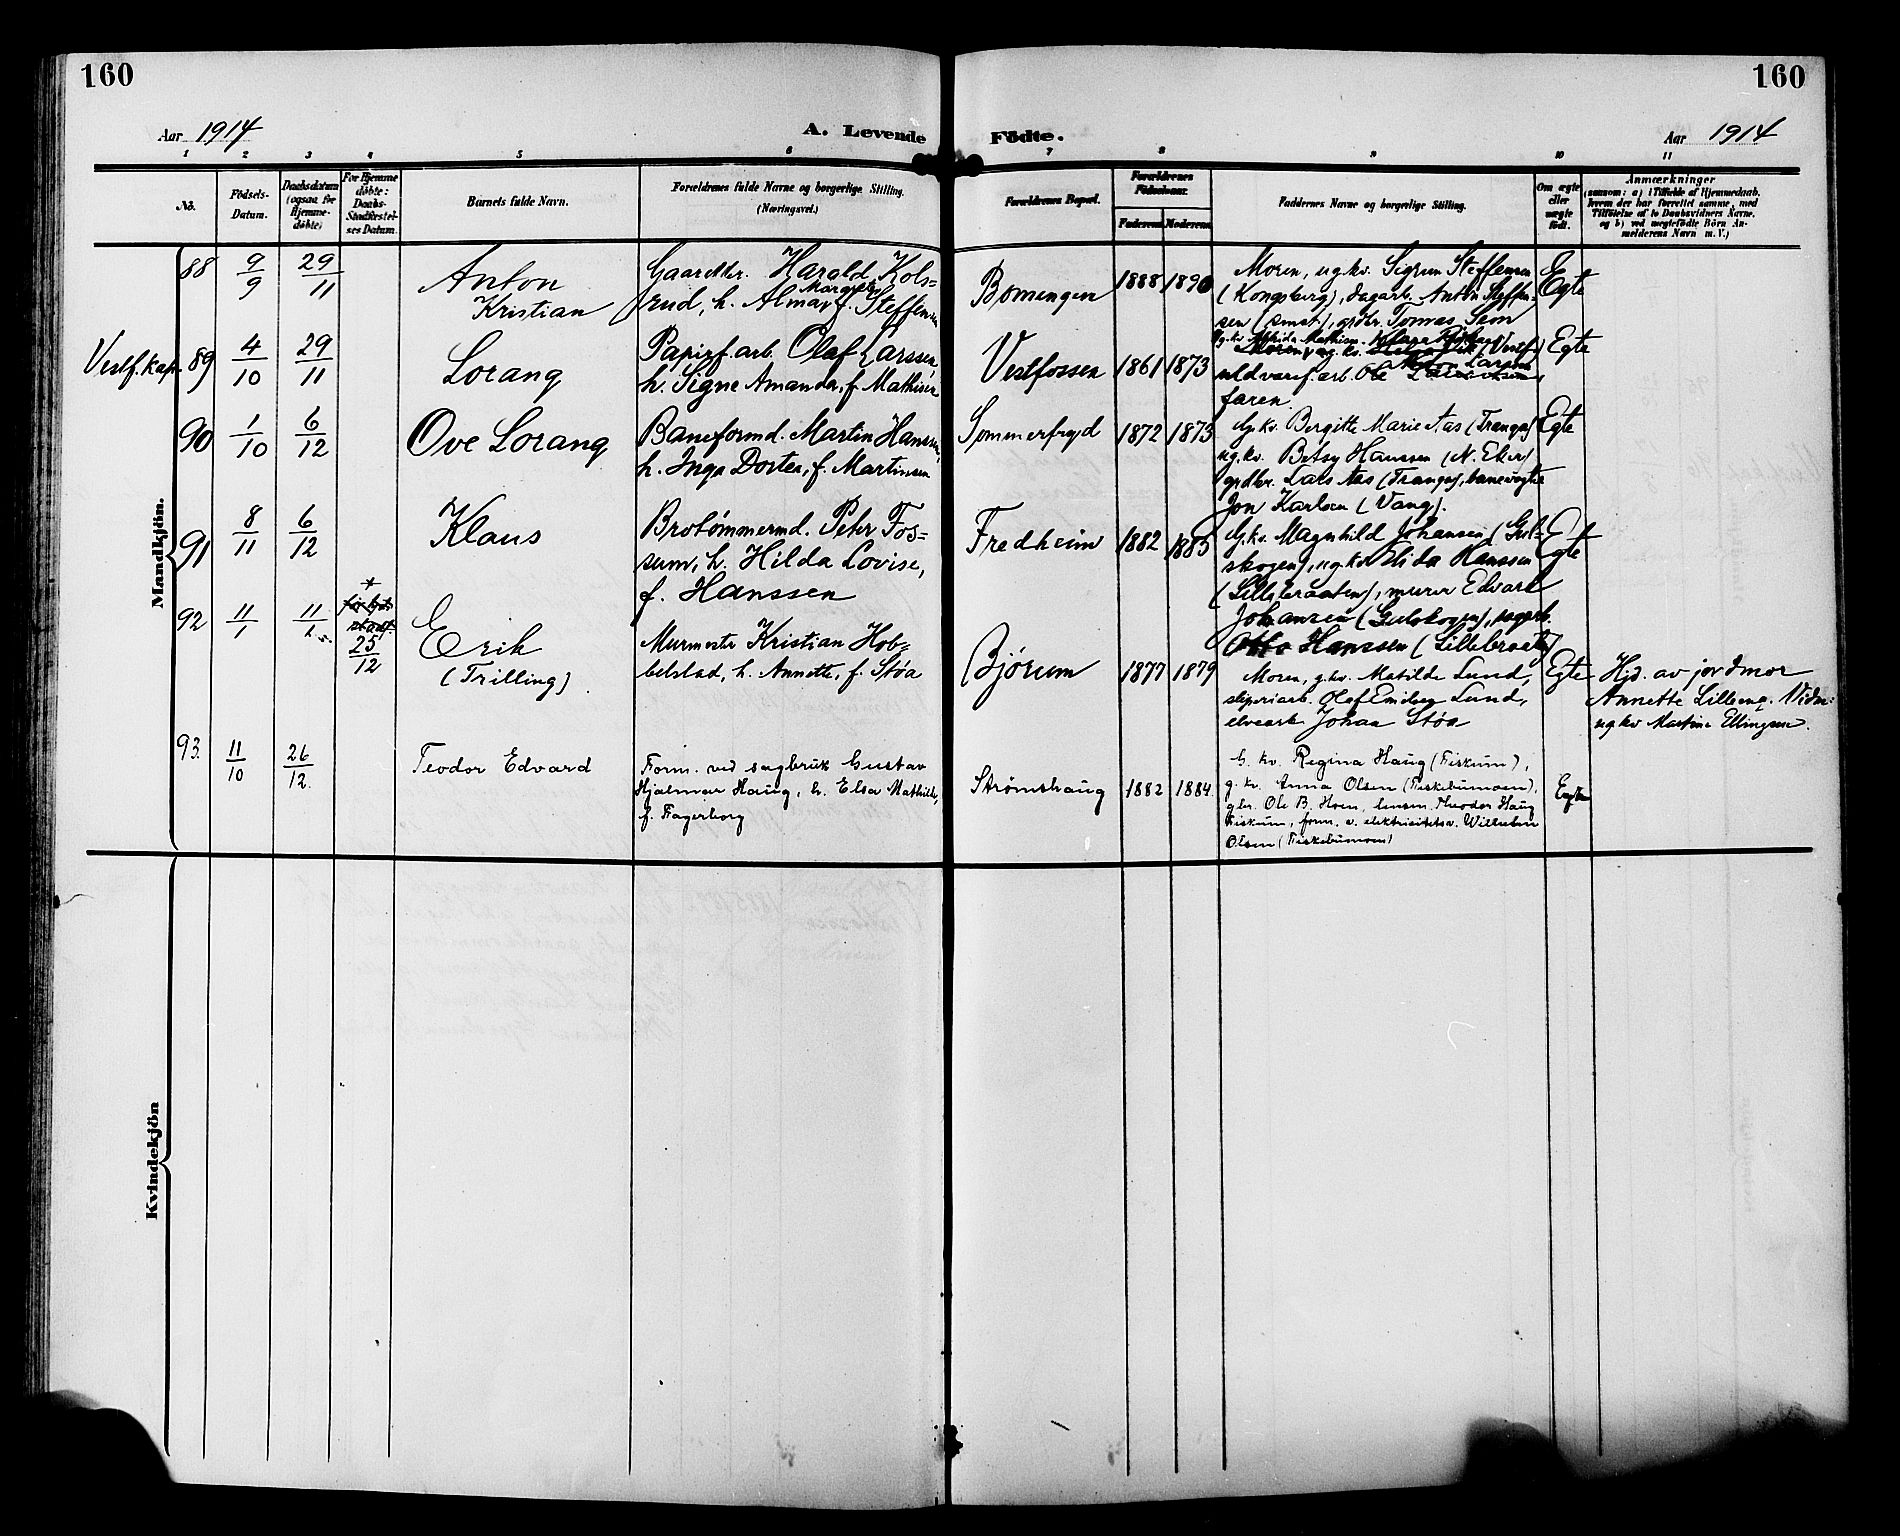 160
160
Aar 1914
A. Levende
Födte.
Aar 1914
1 2 3 4 5 6 7 8 9 10 11
No.
Födsels-
Datum.
Daabsdatum
(ogsaa for
Hjemme-
döbte)
For Hjemme
döbte:
Daabs-
Stadfæstel-
ses Datum.
Barnets fulde Navn.
Forældrenes fulde Navne og borgerlige Stilling.
(Næringsvei.)
Forældrenes Bopæl.
Forældrenes
Födselsaar.
Faderens
Moderens
Faddernes Navne og borgerlige Stilling.
Om ægte
eller
uægte
født.
Anmærkninger
(saasom: a) i Tilfælde af Hjemmedaab,
hvem der har forrettet samme, med
Tilföielse af to Daabsvidners Navne,
og b) ved uegtefödte Börn An-
melderens Navn m. V.)
Mandkjön.
88
9/9
29/11
Anton
Kristian
Gaardbr. Harald Kols-
Margrete
rud, h. Alma f. Steffensen
Bomengen
1888
1890
Moren, ug.kv. Sigrun Steffensen
(Kongsberg), dagarb. Anton Steffen-
sen (smst.), grdbr. Tomas Teon
Egte
Vestf.kap.
89
4/10
29/11
Lorang
Papirf.arb. Olaf Larssen,
h. Signe Amanda, f. Mathisen
Vestfossen
1861
1873
uldvaref.arb. Ole
faren
Egte
90
1/10
6/12
Ove Lorang
Baneformd. Martin Hanssen,
h. Inga Dortea, f. Martinsen
Sommerfryd
1872
1873
G.kv. Bergitte Marie Aas (Tranga)
ug.kv. Betsy Hanssen (N. Eker)
grdbr. Lars Aas (Tranga), banevogter
Jon Karlsen (Vang).
Egte
91
8/11
6/12
Klaus
Brotømmermd. Peter Fos-
sum, h. Hilda Lovise,
f. Hanssen
Fredheim
1882
1885
G.kv. Magnhild Johansen (Gul-
skogen), ug.kv. Hilda Hanssen
(Lillebraaten), murer Edvard
Johansen (Gulskogen), sagarb.
Otto Hanssen (Lillebraaten)
Egte
92
11/1
11/1
25/12
Erik
(Trilling)
Murmester Kristian Hob-
belstad, h. Annette, f. Støa
Bjørum
1877
1879
Moren, g.kv. Matilde Lund,
sliperiarb. Olaf Lund,
elvearb. Johan Støa
Egte
Hjd. av jordmor
Annette Lilleeng. Vidn:
ug.kv Martine Ellingsen.
93.
11/10
26/12.
Teodor Edvard
Form. ved sagbruk Gustav
Hjalmar Haug, h. Elsa Mathilde,
f. Fagerborg
Strømshaug
1882
1884.
G. kv. Regina Haug (Fiskum),
g. kv. Anna Olsen (Fiskebumoen),
gbr. Ole B. Hoen, lensm. Theodor Haug
Fiskum, form. v. elektrisitetsv. Wilhelm
Olsen (Fiskebumoen)
Egte
Kvindekjön